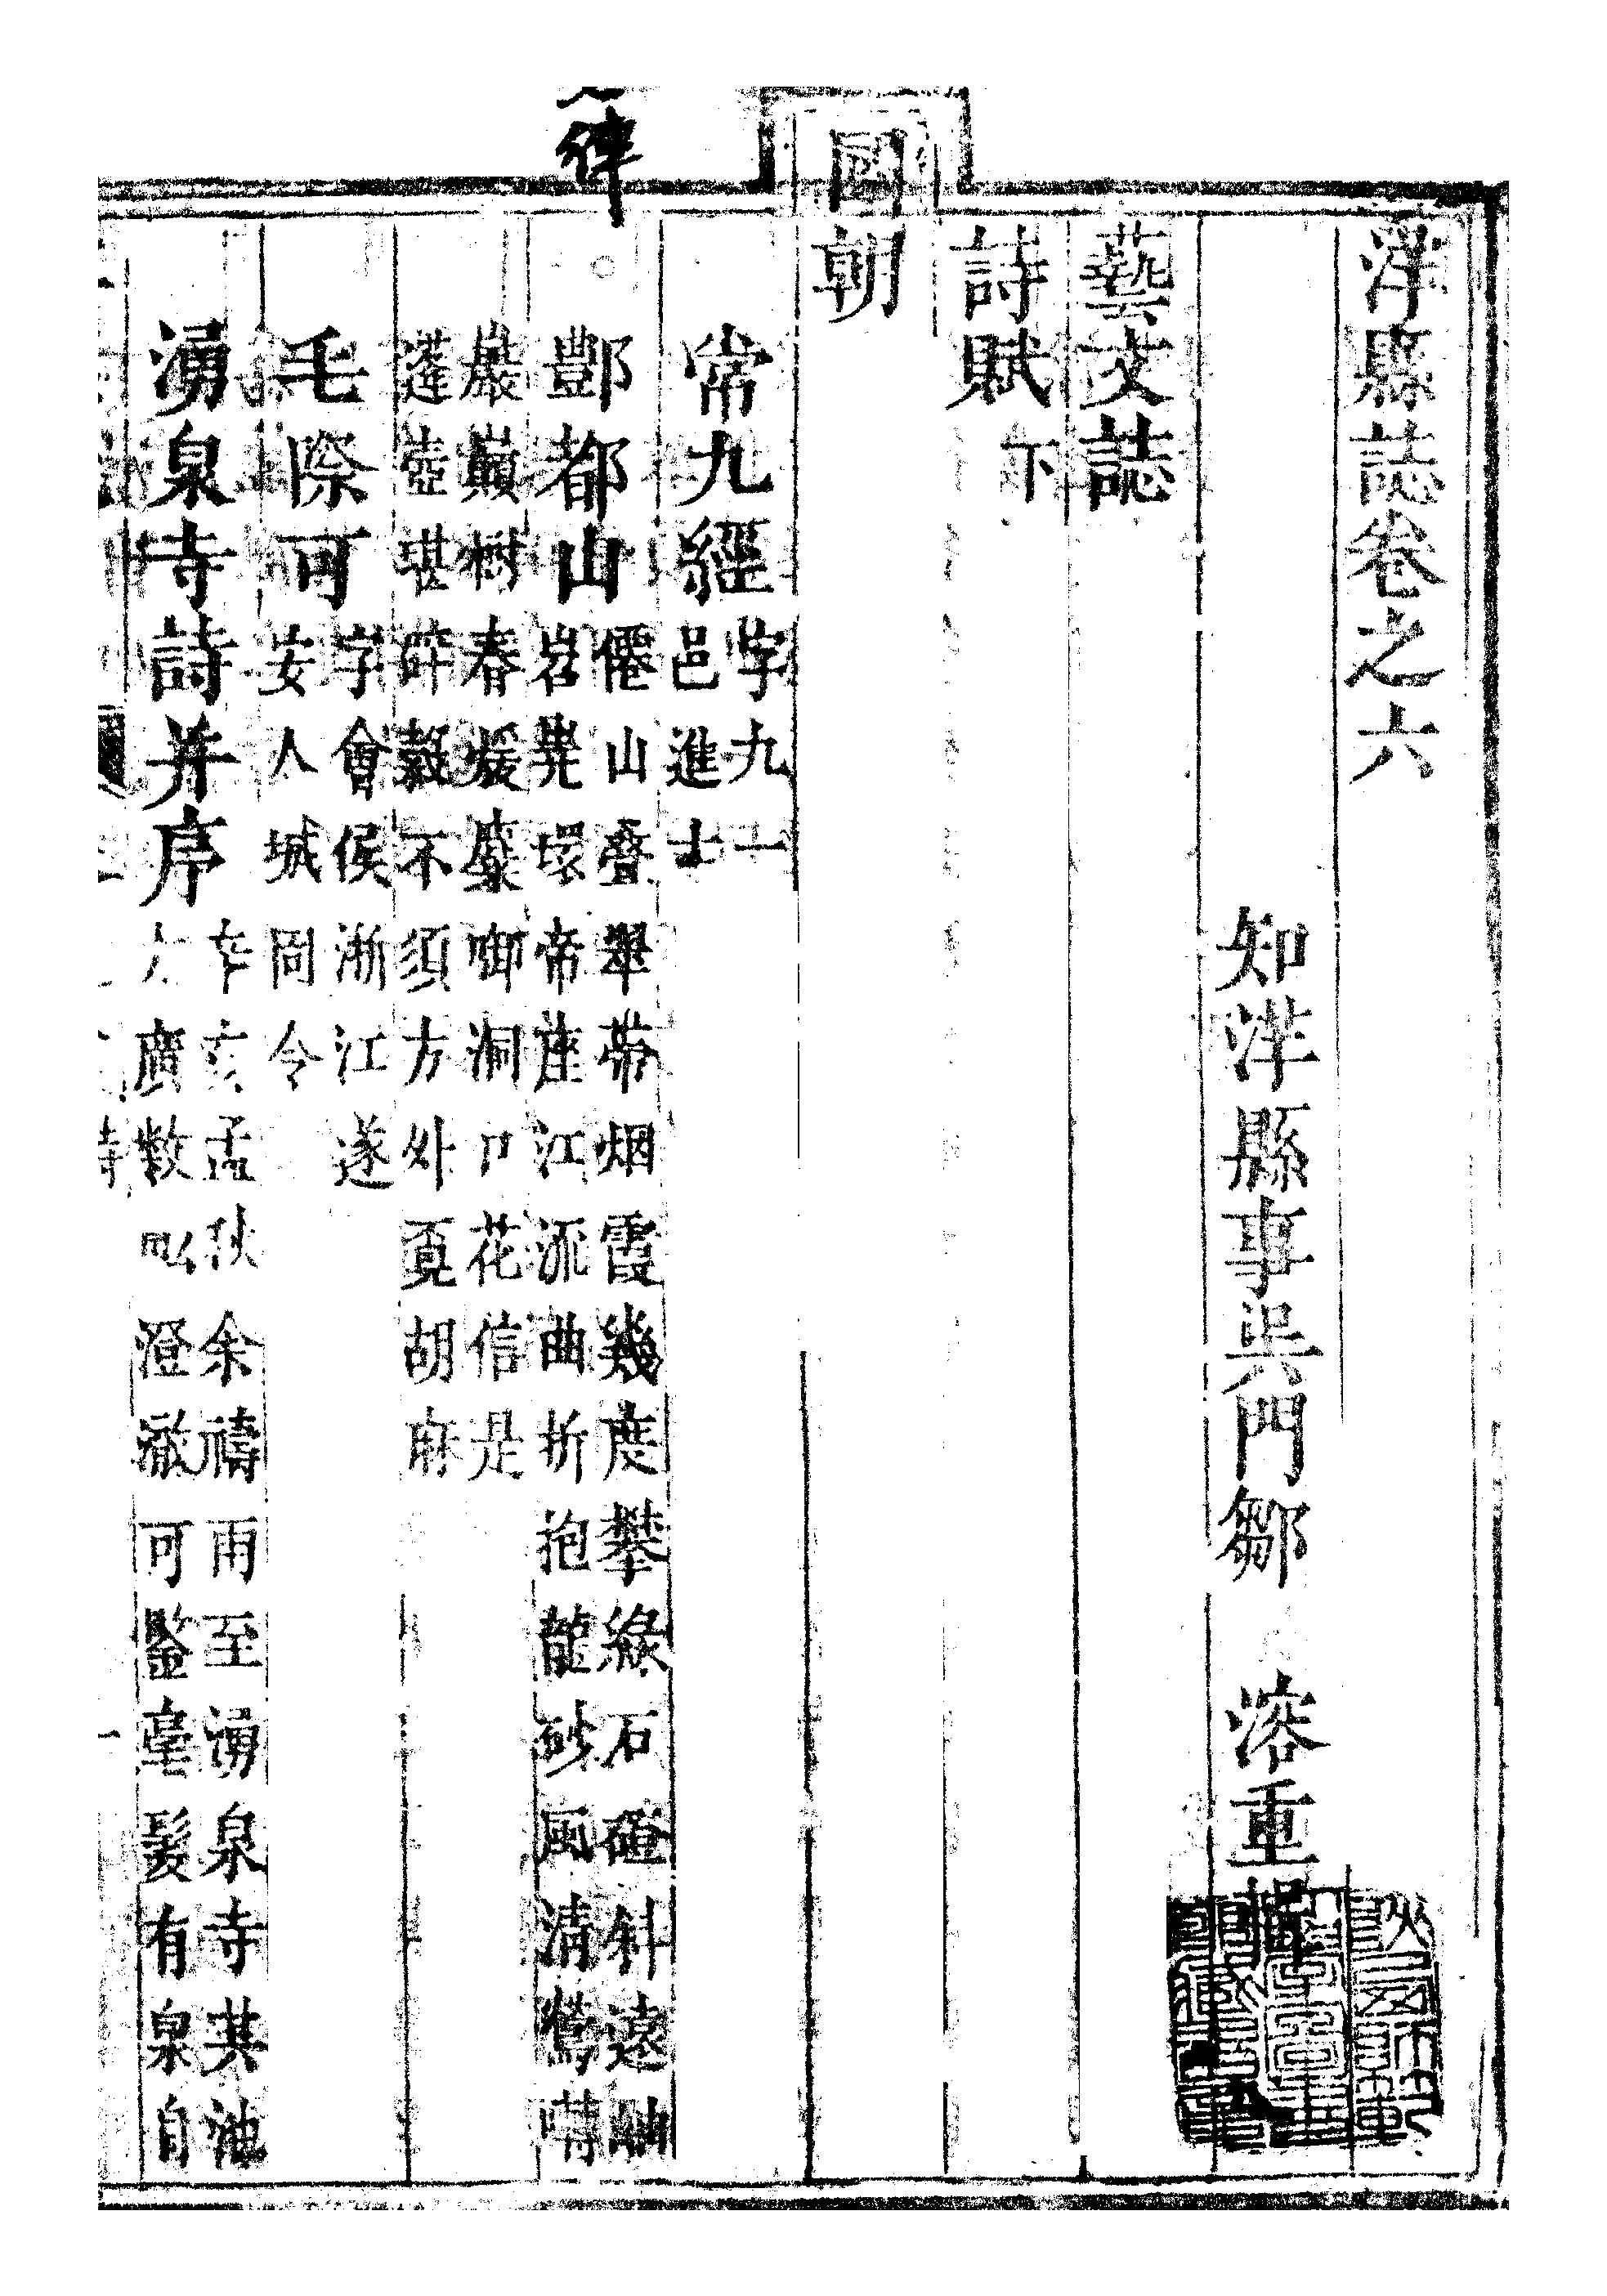 洋縣誌卷之六
知洋縣事吳門鄒溶重輯
藝文誌
詩賦下
國朝
常九經字九一邑進士
律
酆都山僊山叠翠帶烟霞幾度攀緣石磴斜遠岫
岧嶤環帝座江流曲折抱龍砂風清鶯囀
巖巔樹春煖麋啣洞口花信是
蓬壺堪辟穀不須方外覓胡麻
毛際可字會侯浙江遂安人城固令
湧泉寺詩并序
辛亥孟秋余禱雨至湧泉寺其池
廣數畝澄澈可鑒毫髮有泉自